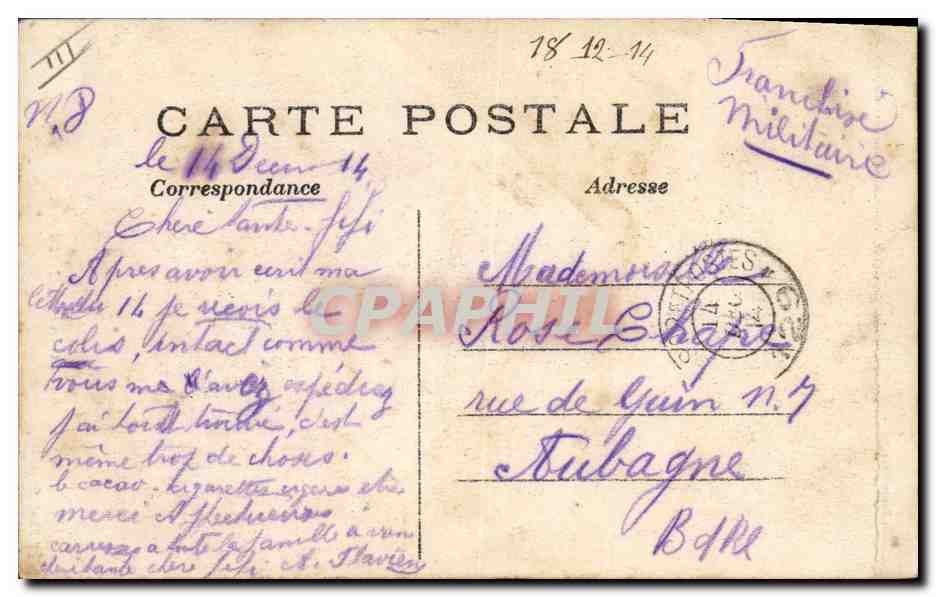 18 12-14
Franchise
Militaire
III
N.8
CARTE POSTALE
le 14 Decem 14
Correspondance
Adresse
Chere tante fifi
Apres avoir ecrit ma
lettre du 14 je reçois le
colis, intact comme
vous me l'avez expédiez
j'ai tout trouvé, c'est
même trop de choses.
le cacao. cigarettes
merci Affectueuses
caresses a toute la famille a
tante chère fifi A. Flavien
Mademoiselle
Rose Chape
rue de Guin n. 7
Aubagne
BdRh
CPAPHIL
POSTES